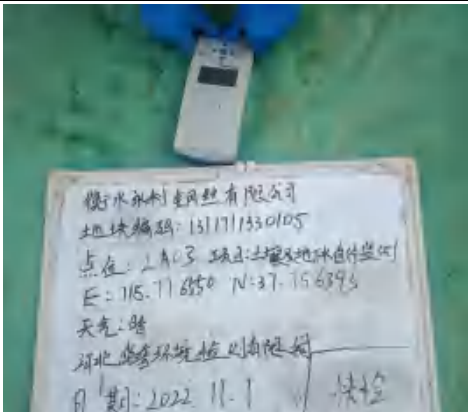 衡水永利金网丝有限公司
地块编码:1311711330105
点位:2A03 项目:土壤及地下水自行监测
E:115.716550 N:37.756393
天气:晴
河北 环境检测有限公司
日期:2022.11.1 快检